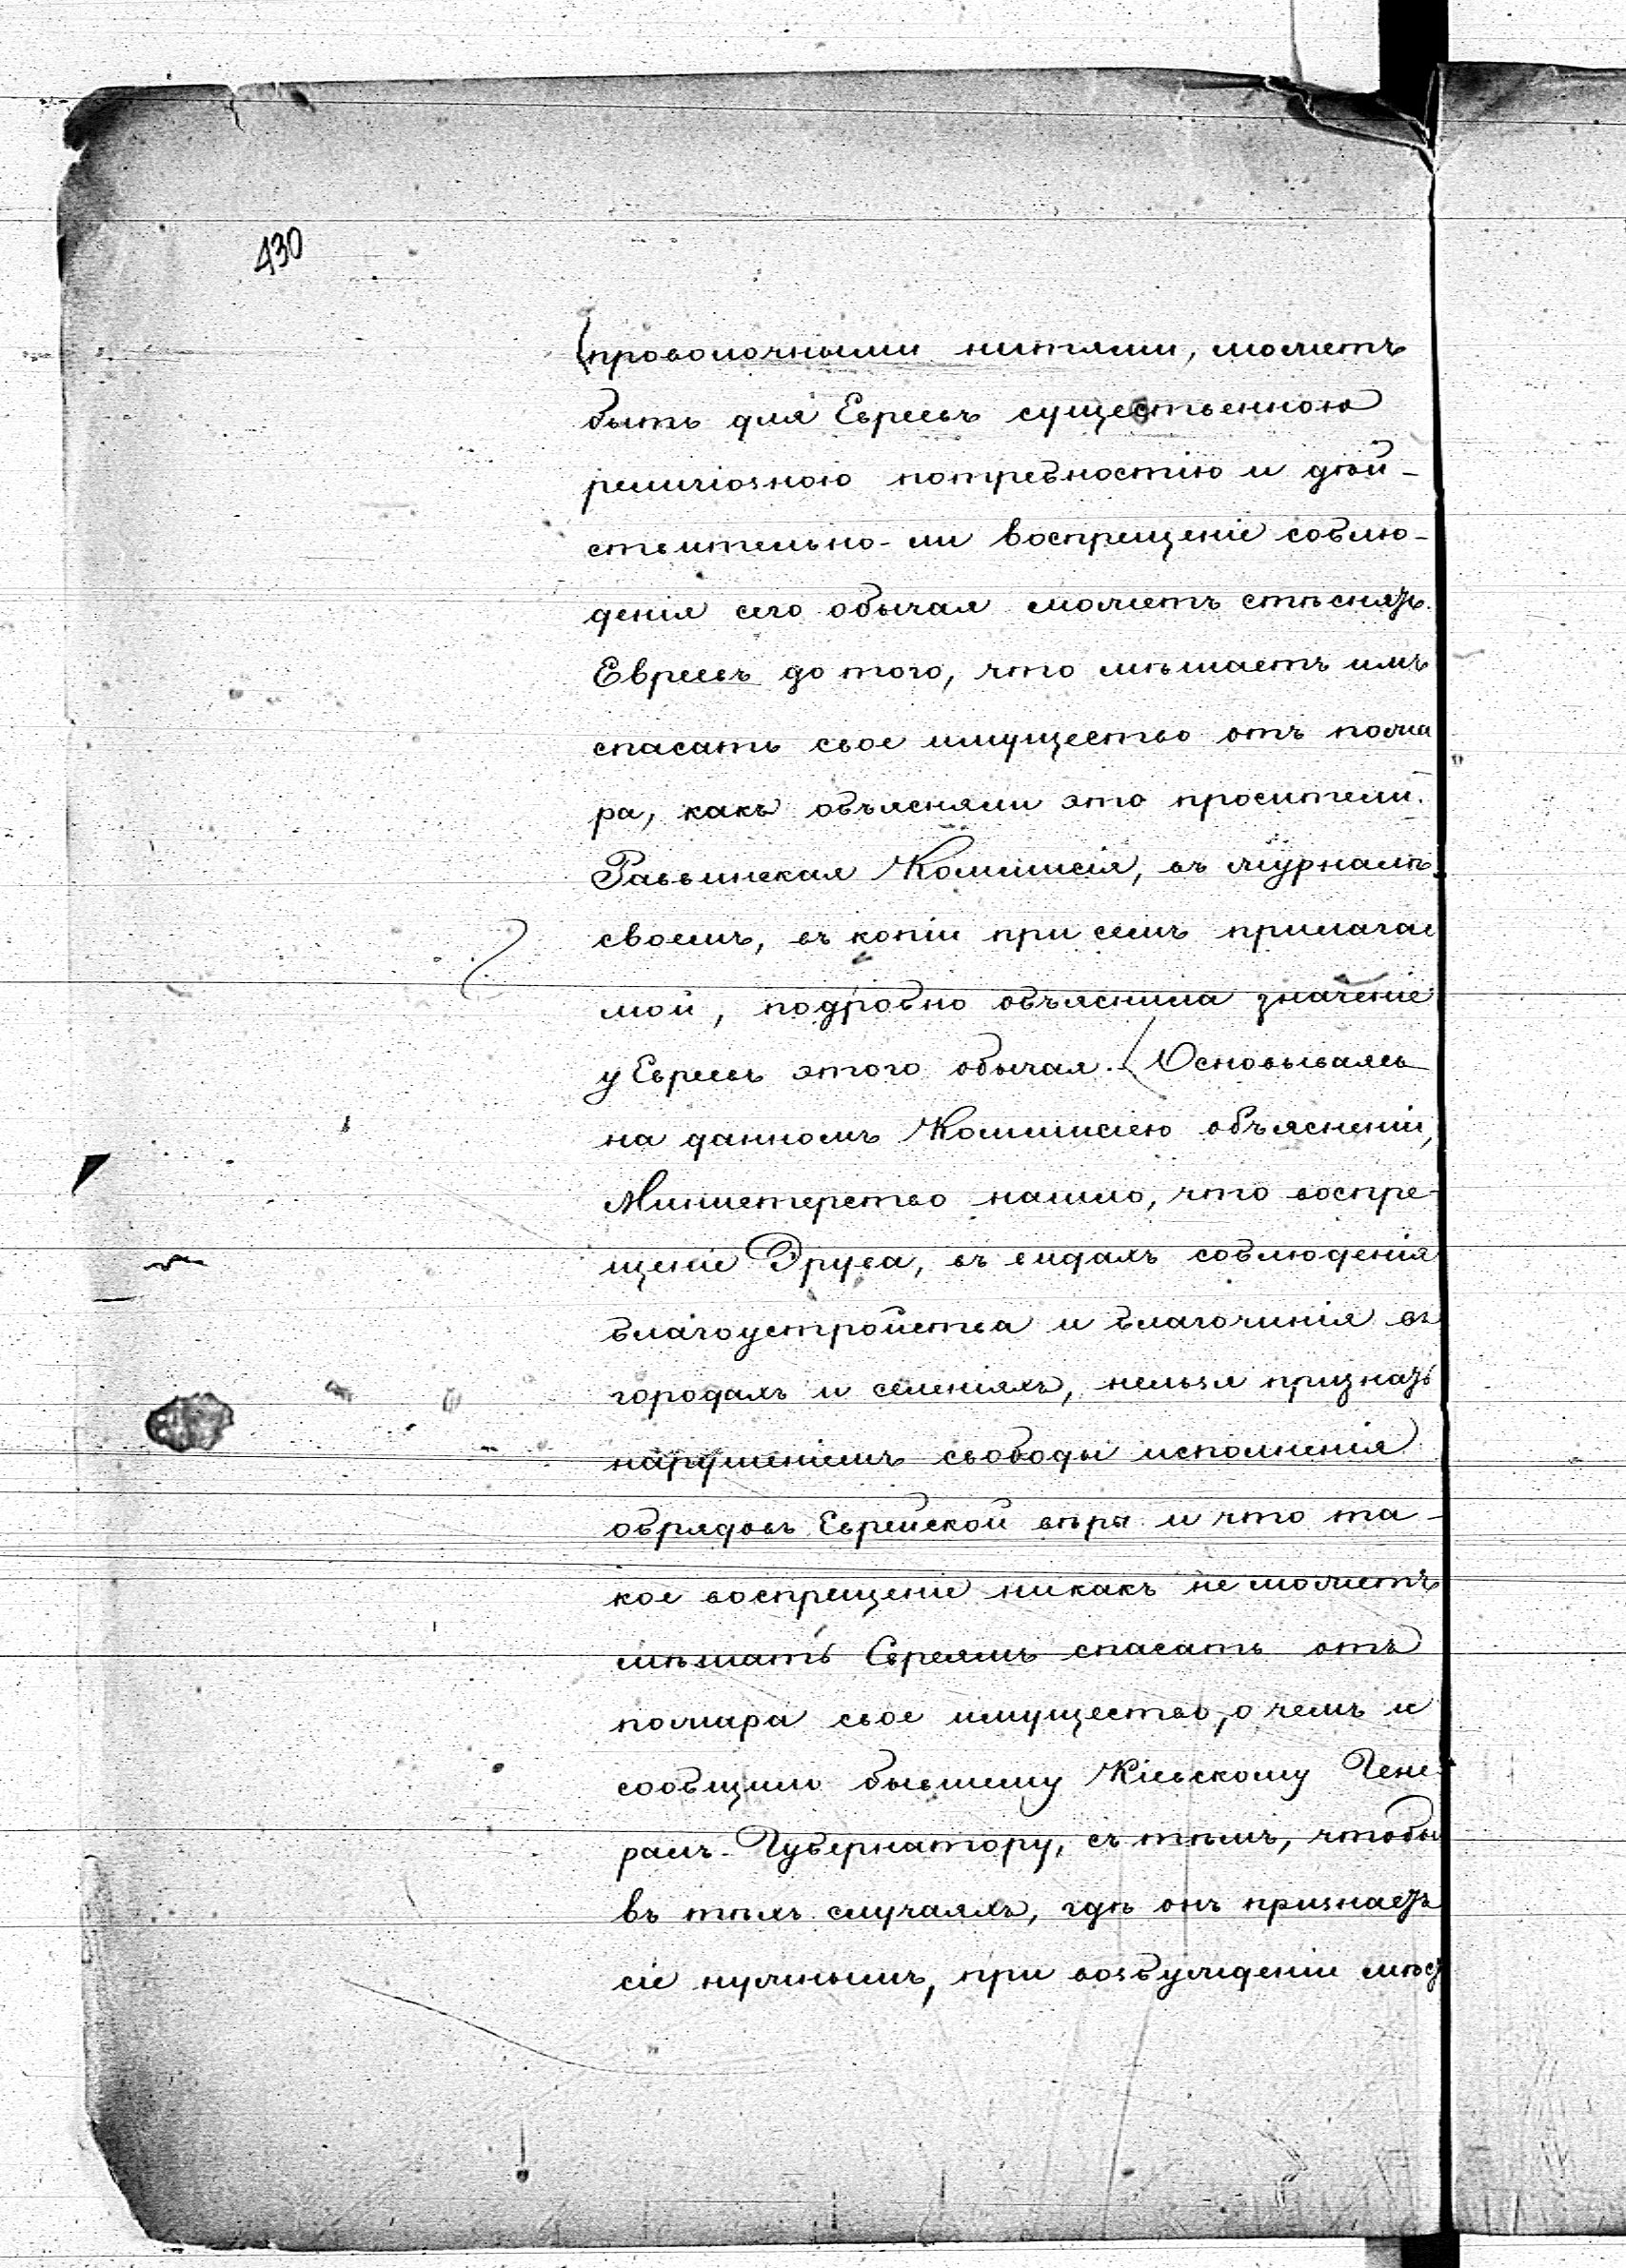 430
проволочными нитями, можетъ
быть для Евреевъ существенною
религіозною потребностію и дѣй-
ствительно-ли воспрещеніе соблю-
денія сего обычая можетъ стѣснять
Евреевъ до того, что мѣшаетъ имъ
спасать свое имущество отъ пожа
ра, какъ объясняли это просители.
Раввинская Коммисія, въ журналѣ
своемъ, въ копіи при семъ прилагае
мой, подробно объяснила значеніе
у Евреевъ этого обычая. Основываясь
на данномъ Коммисіею объясненіи,
Министерство нашло, что воспре-
щеніе Эрува, въ видахъ соблюденія
благоустройства и благочинія въ
городахъ и селеніяхъ, нельзя признать
нарушеніемъ свободы исполненія
обрядовъ Еврейской вѣры и что та-
кое воспрещеніе никакъ не можетъ
мѣшать Евреямъ спасать отъ
пожара свое имущество, о чемъ и
сообщило бывшему Кіевскому Гене
ралъ-Губернатору, съ тѣмъ, чтобы
въ тѣхъ случаяхъ, гдѣ онъ признаетъ
сіе нужнымъ, при возбужденіи мѣст